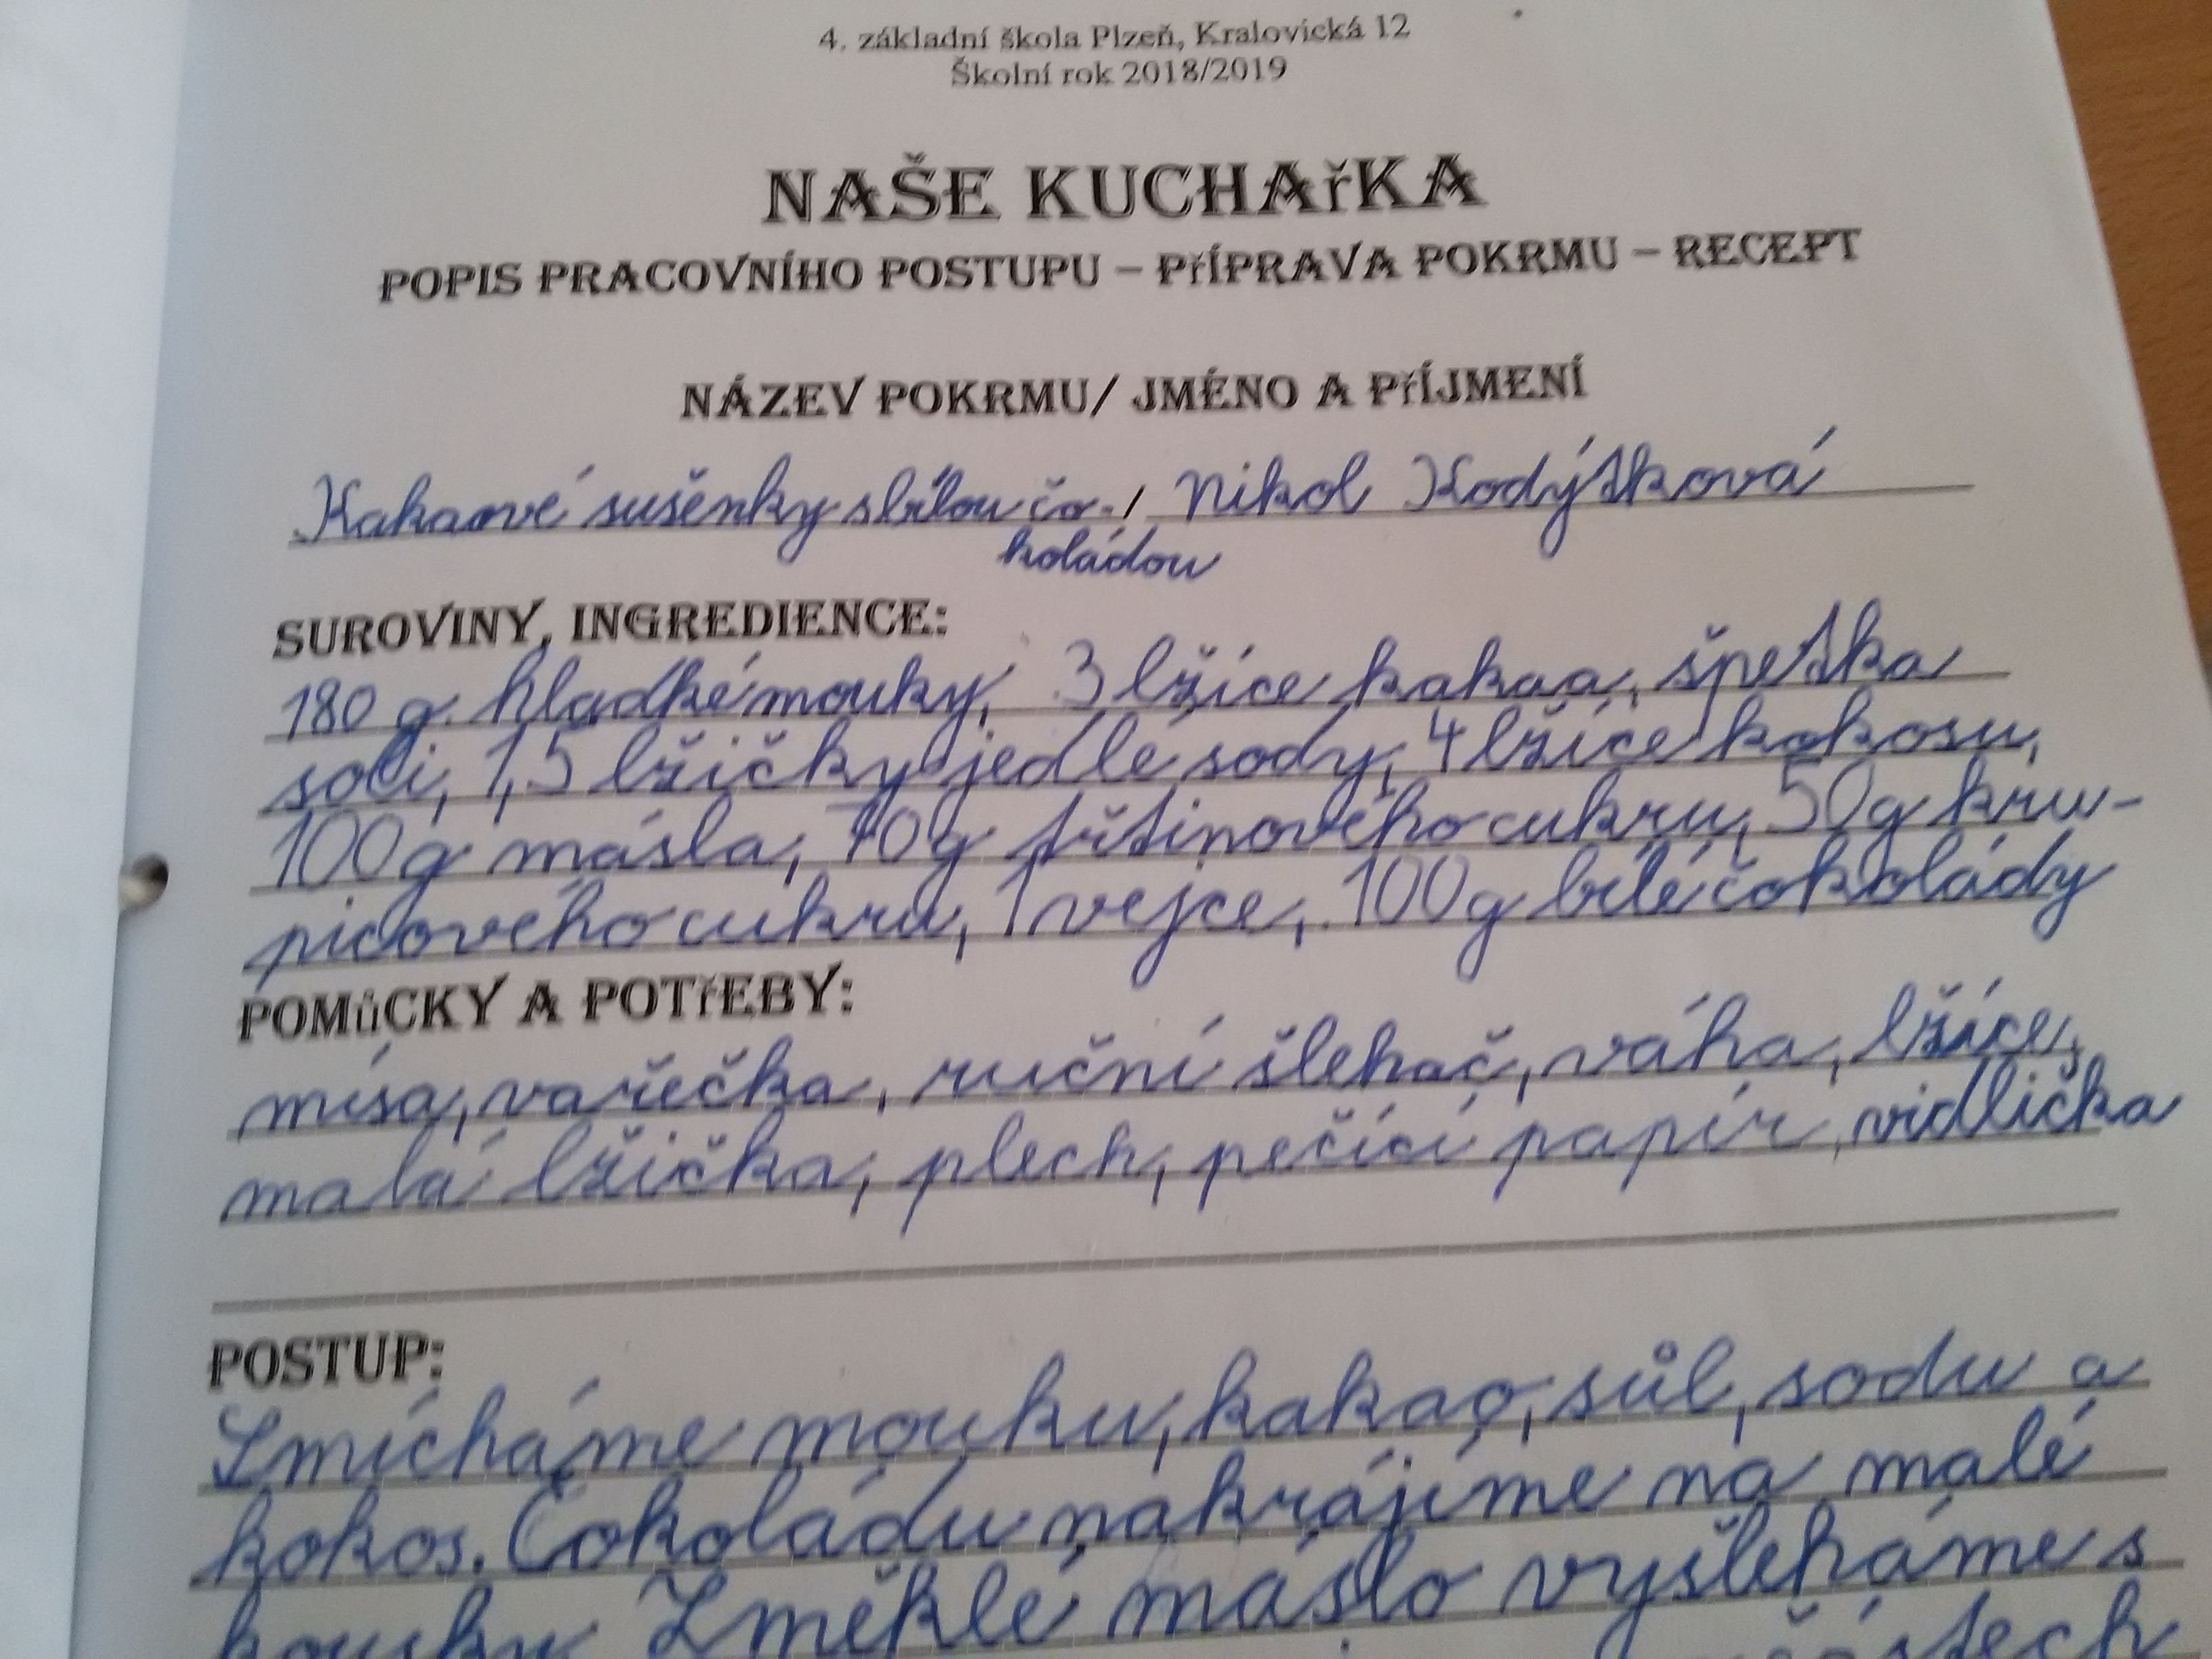 4. základní škola Plzeň, Kralovická 12
Školní rok 2018/2019
NAŠE KUCHAřKA
POPIS PRACOVNÍHO POSTUPU – PřÍPRAVA POKRMU – RECEPT
NÁZEV POKRMU/ JMÉNO A PřÍJMENÍ
Kakaové sušenky s bílou čo- / Nikol Kodýtková
koládou
SUROVINY, INGREDIENCE:
180 g. hladké mouky, 3 lžíce kakaa, špetka
soli, 1,5 lžičky jedlé sody, 4 lžíce kokosu,
100g másla, 70g třtinového cukru, 50g kru-
picového cukru, 1 vejce, 100g bílé čokolády
POMůCKY A POTřEBY:
mísa, vařečka, ruční šlehač, váha, lžíce,
malá lžička, plech, pečící papír, vidlička
POSTUP:
Smícháme mouku, kakao, sůl, sodu a
kokos. Čokoládu nakrájíme na malé
kousky. Změklé máslo vyšleháme s
částech